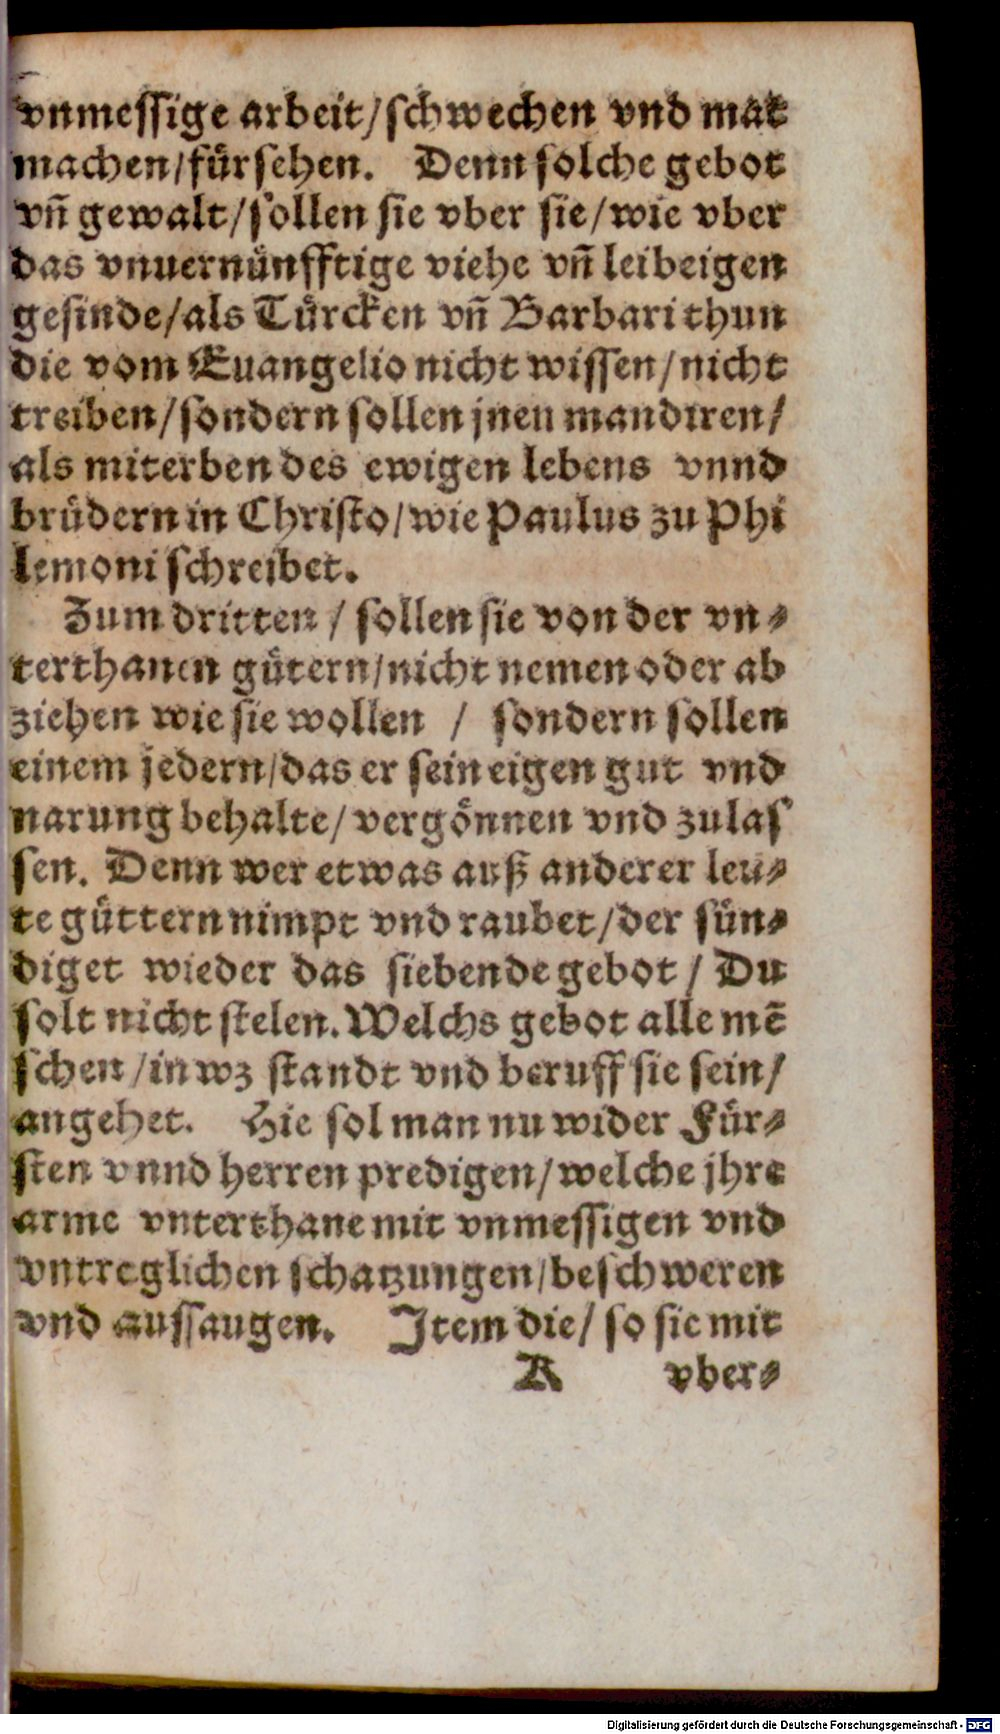 vnmessige arbeit/schwechen vnd mat
machen/fürsehen. Denn solche gebot
vñ gewalt/sollen sie vber sie/wie vber
das vnuernünfftige viehe vñ leibeigen
gesinde/als Türcken vñ Barbari thun
die vom Euangelio nicht wissen/nicht
treiben/sondern sollen jnen mandiren/
als miterben des ewigen lebens vnnd
brüdern in Christo/wie Paulus zu Phi
lemoni schreibet.
Zum dritten / sollen sie von der vn-
terthanen gütern/nicht nemen oder ab
ziehen wie sie wollen / sondern sollen
einem jedern/das er sein eigen gut vnd
narung behalte/vergönnen vnd zulas
sen. Denn wer etwas auß anderer leu-
te güttern nimpt vnd raubet/der sün-
diget wieder das siebende gebot/ Du
solt nicht stelen. Welchs gebot alle mē
schen/in wz standt vnd beruff sie sein/
angehet. Hie sol man nu wider Für-
sten vnnd herren predigen/welche jhre
arme vnterthane mit vnmessigen vnd
vntreglichen schatzungen/beschweren
vnd aussaugen. Item die/ so sie mit
K vber-
Digitalisierung gefördert durch die Deutsche Forschungsgemeinschaft - DFG